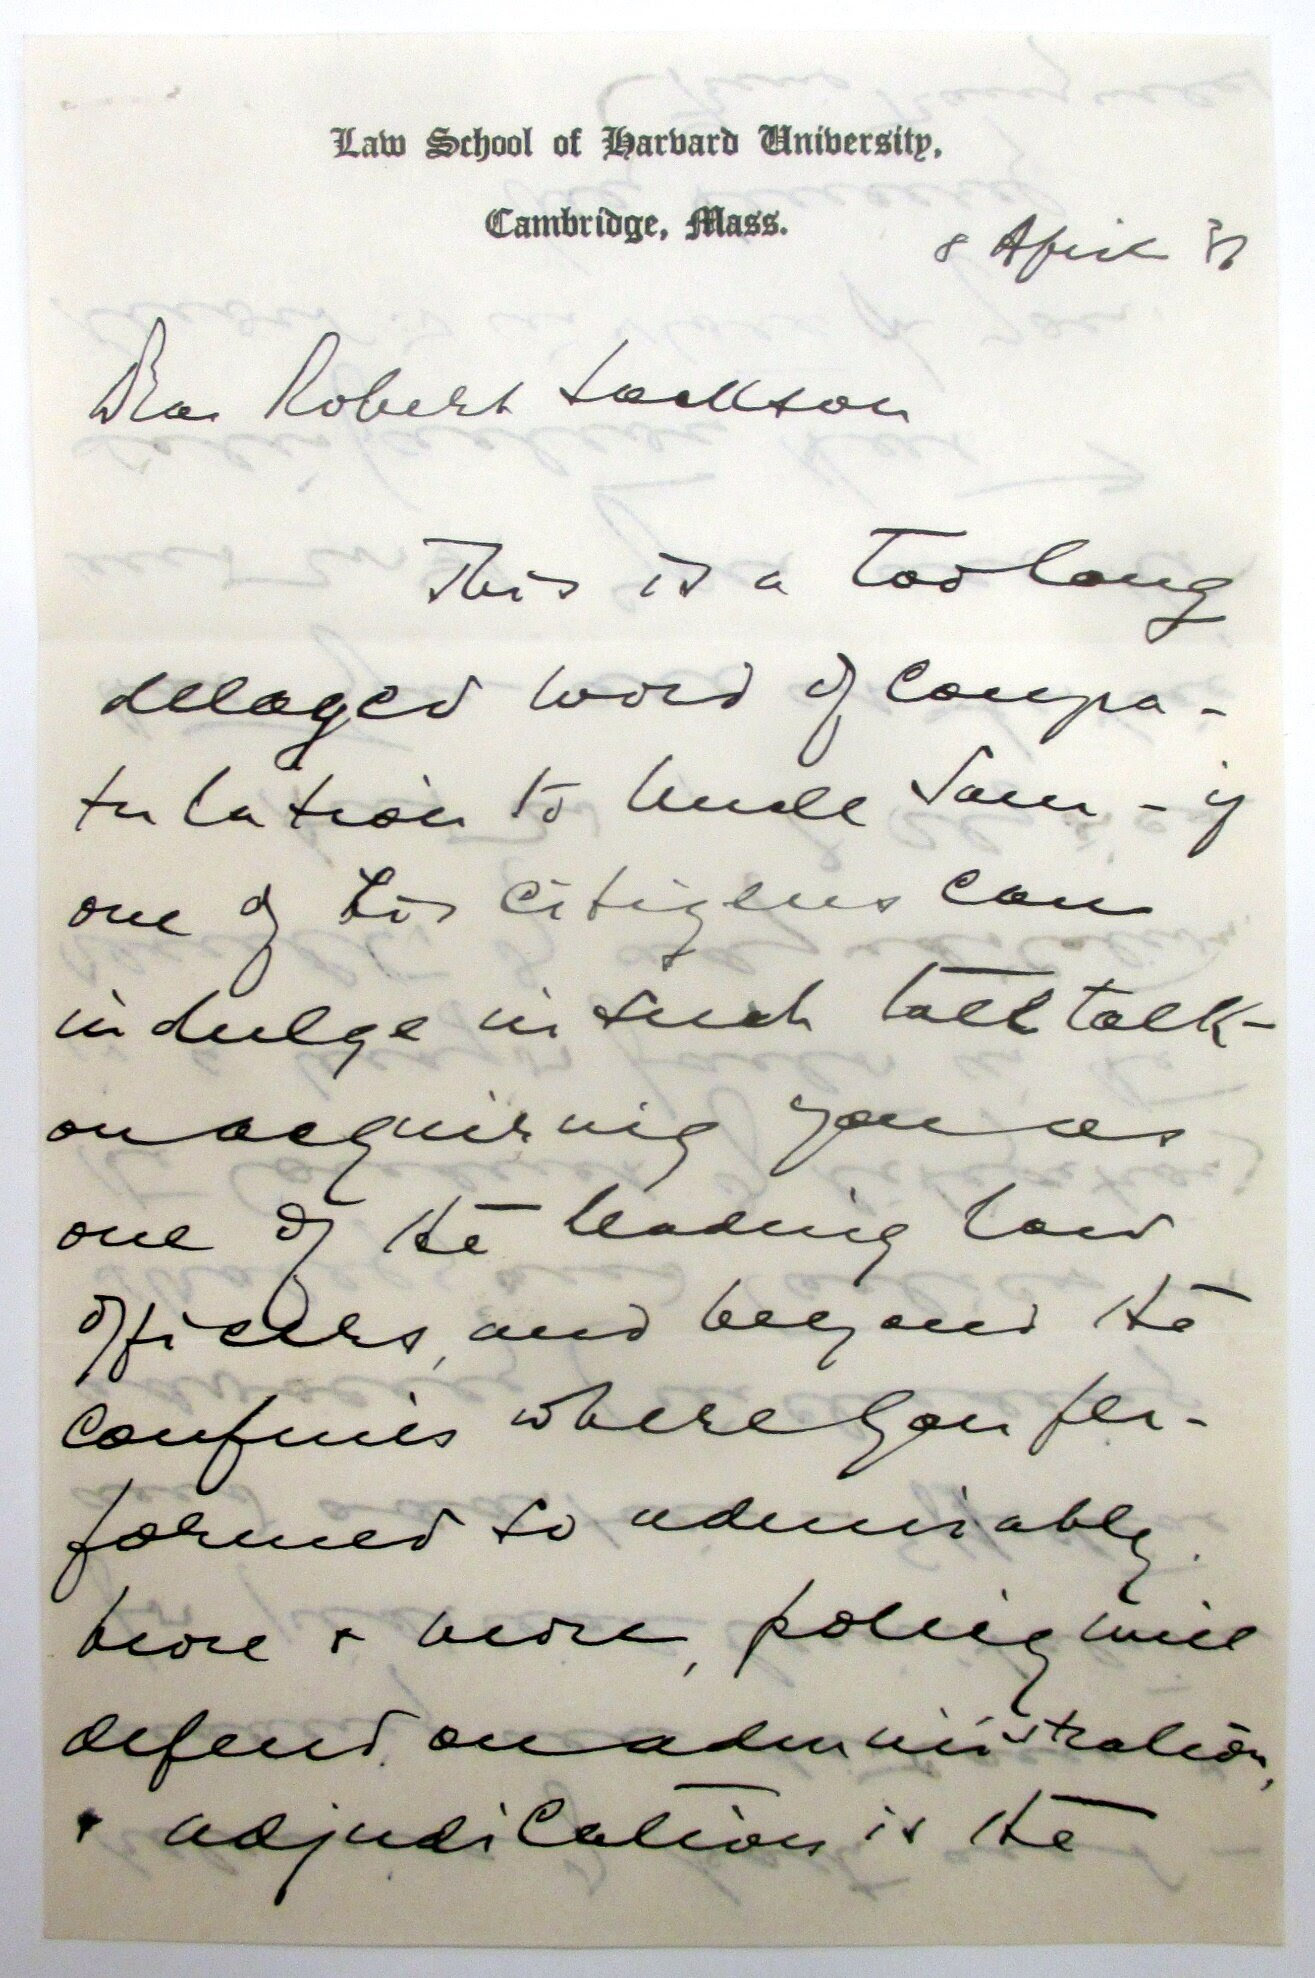 Law School of Harvard University,
Cambridge, Mass.
8 April
Dear Robert Jackson
This is a too long
delayed word of congra-
tulation to Uncle Sam - if
one of his citizens can
indulge in such tall talk -
on acquiring you as
one of the leading law
officers, and beyond the
confines where you per-
formed so admirably.
More & more, policy will
depend on administration,
& adjudication is the